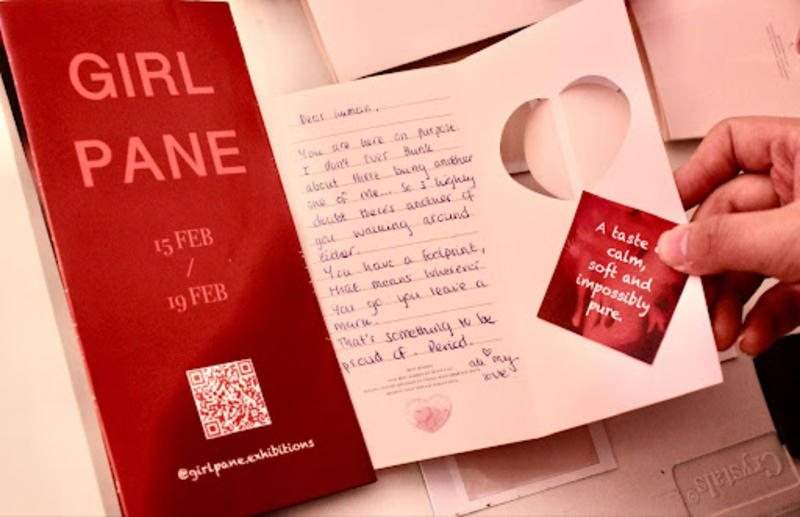 GIRL
PANE
15 FEB
/
19 FEB
@girlpane.exhibitions
Dear human,
You are here on purpose.
I don't ever think
about there being another
one of me... So I highly
doubt there's another of
you walking around
either.
You have a footprint,
that means wherever
you go you leave a
mark.
That's something to be
proud of. Period.
all my
love
A taste
calm,
soft and
impossibly
pure.
Crystals